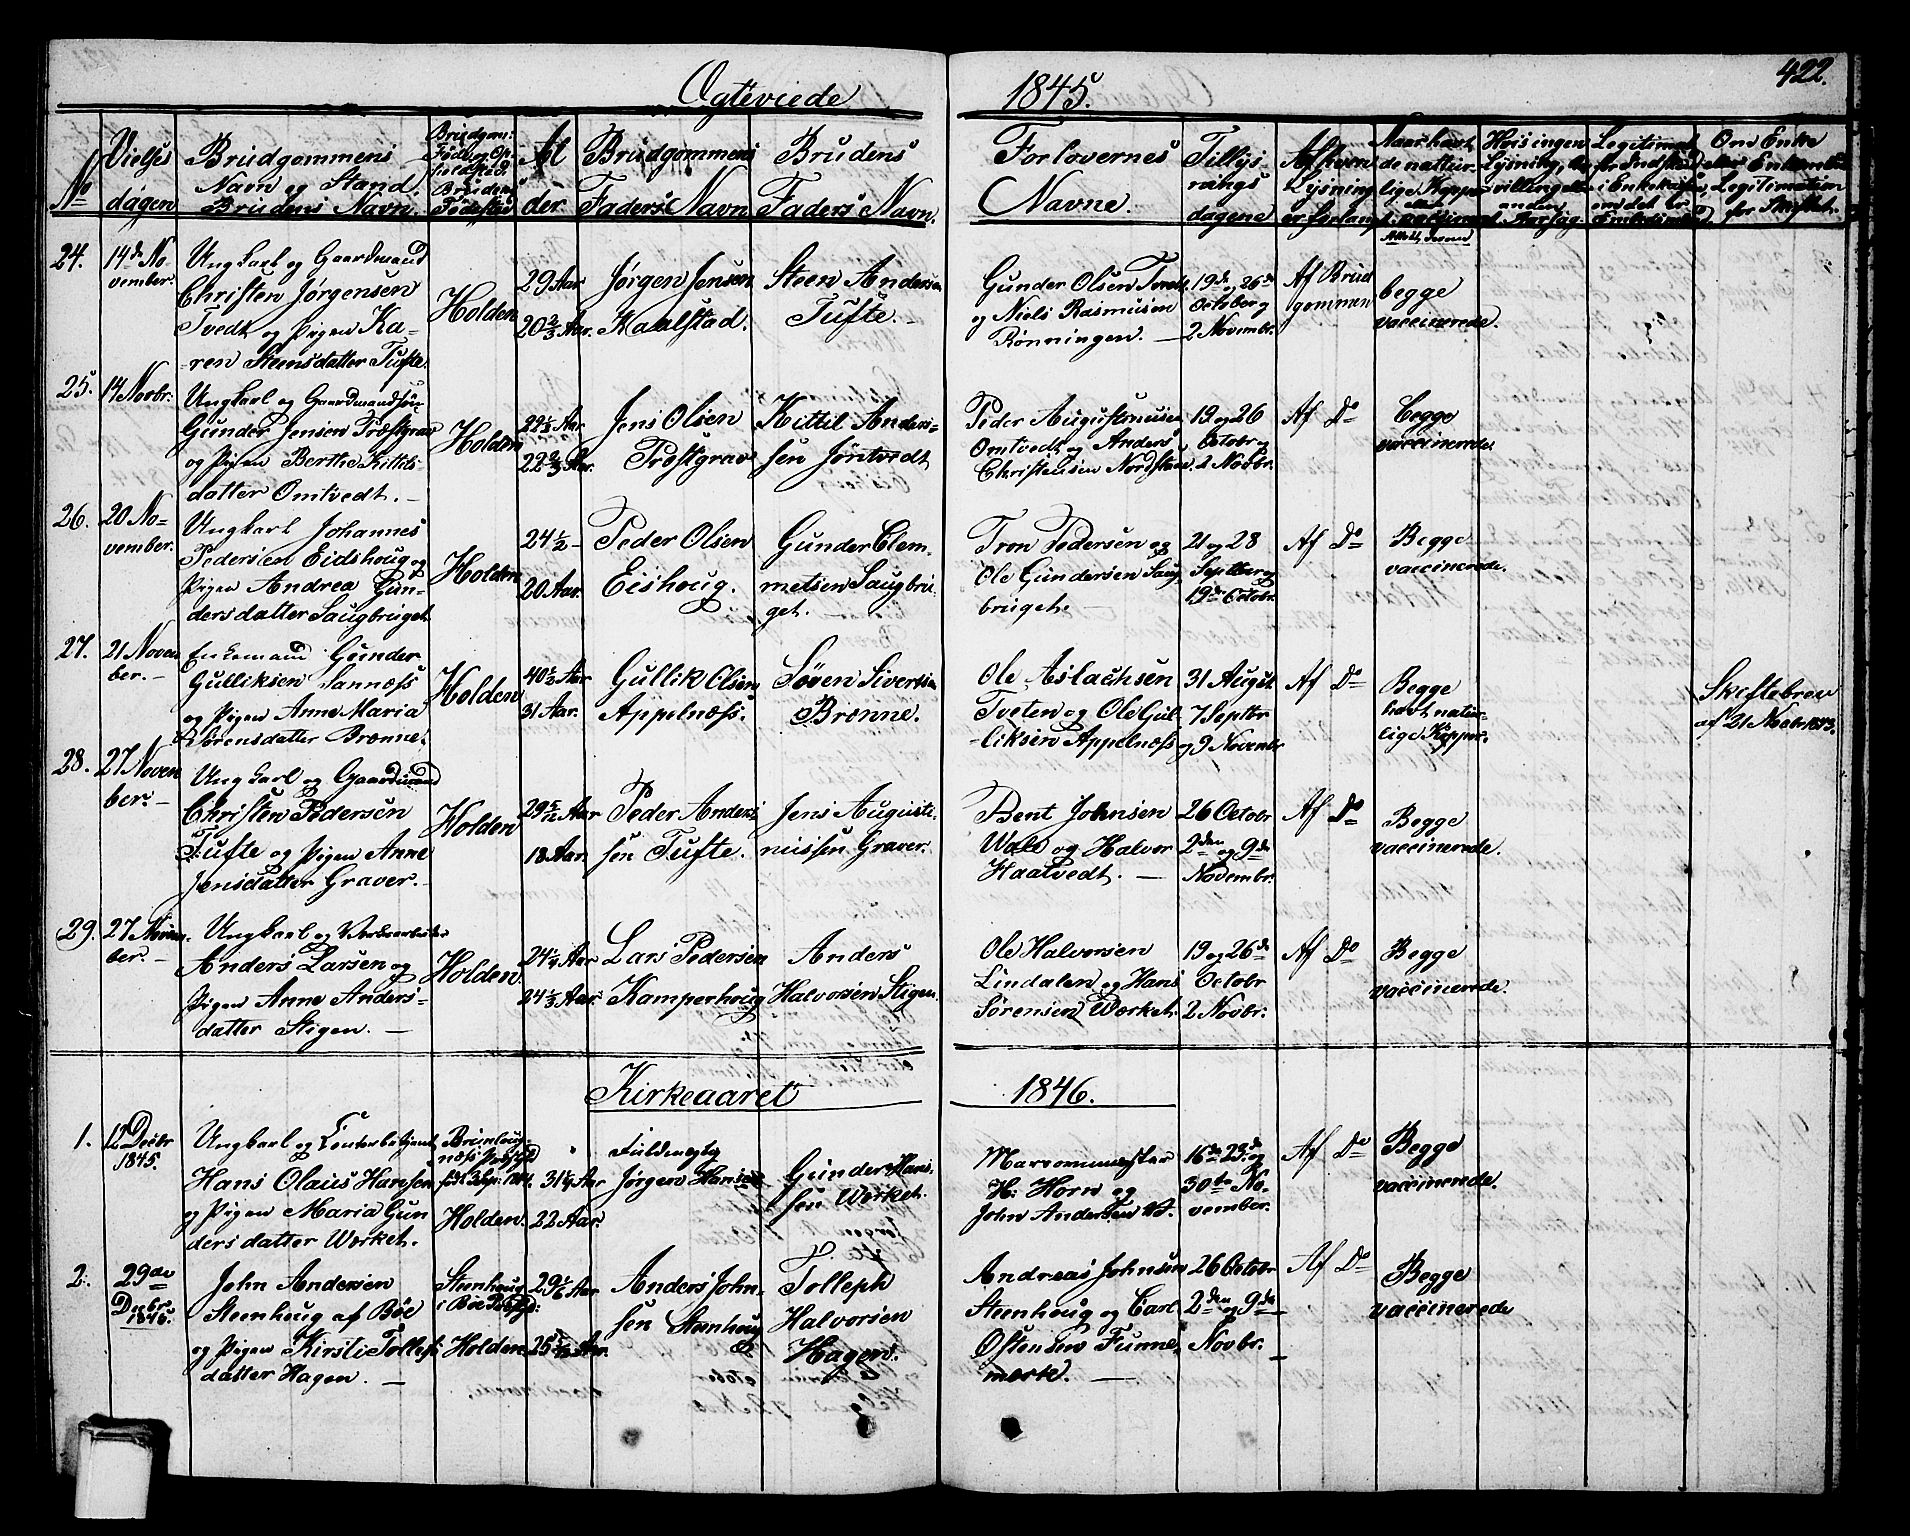 422.
Ægteviede 1845.
No
Vielses
dagen
Brudgommens
Navn og Stand.
Brudens Navn.
Brudgom:
Føde og Op-
holdsted.
Brudens
Fødested
Al
der
Brudgommens
Faders Navn
Brudens
Faders Navn.
Forlovernes
Navne.
Tillys
nings
dagene
Af hvem
Lysning
er forlangt
Naar havt
de natur-
lige Kopper
eller
vaccineret
Om Enke
eller Enkemand
Legitimation
for Skiftet.
24.
14de No-
vember.
Ungkarl og Gaardmand
Christen Jørgensen
Tvedt og Pigen Ka-
ren Steensdatter Tufte.
Holden
29 Aar
20 2/3 Aar.
Jørgen Jensen
Haalstad.
Steen Andersen
Tufte.
Gunder Olsen Tvedt
og Niels Rasmusen
Rønningen.
19de og 26de
October og
2 Novembr.
Af Brud
gommen
begge
vaccinerede.
25.
14 Novbr:
Ungkarl og Gaardmandsøn
Gunder Jensen Præstgrav
og Pigen Berthe Kittils
datter Omtvedt.
Holden
22 2/3 Aar.
Jens Olsen
Præstgrav
Kittil Anders-
sen Jøntvedt
Peder Augustinusen
Omtvedt og Anders
Christensen Nordstuen
19 og 26
Octobr og
2 Novbr.
Af Do
Begge
vaccinerede.
26.
20 No-
vember.
Ungkarl Johannes
Pedersen Eidshoug og
Pigen Andrea Gun-
dersdatter Saugbruget
Holden
24 1/2
20 Aar.
Peder Olsen
Eishoug.
Gunder Clem-
metsen Saugbru-
get.
Tron Pedersen og
Ole Gundersen Saug
bruget.
21 og 28
Septber og
19de Octobr.
Af Do
Begge
vaccinerede.
27.
21 Novem
ber.
Enkemand Gunder
Gulliksen Sannæss
og Pigen Anne Maria
Sørensdatter Brønne.
Holden
40 1/2 Aar
31 Aar.
Gullik Olsen
Appelnæss.
Søren Sivertsen
Brønne.
Ole Aslachsen
Tveten og Ole Gul-
liksen Appelnæss
31 August
7 Septbr
og 9 Novembr
Af Do
Begge
havt natur-
lige Kopper.
Skiftebrev
af 21 Novbr 1843.
28.
27 Novem
ber.
Ungkarl og Gaardmand
Christen Pedersen
Tufte og Pigen Anne
Jensdatter Graver.
Holden
29 5/12 Aar
18 Aar.
Peder Anders
sen Tufte.
Jens Augusti-
nussen Graver.
Bent Johnsen
Wale og Halvor
Haatvedt.
26 Octobr
2den og 9de
Novembr.
Af Do
Begge
vaccinerede.
29.
27 Novem-
ber.
Ungkarl og Værksarbeider
Anders Larsen og
Pigen Anne Anders-
datter Stigen.
Holden
24 1/4 Aar
24 1/3 Aar
Lars Pedersen
Kamperhoug
Anders
Halvorsen Stigen.
Ole Halvorsen
Lindalen og Hans
Sørensen Værket.
19 og 26de
Octobr
2 Novbr.
Af Do
Begge
vaccinerede.
Kirkeaaret 1846.
1.
12 Decbr
1845.
Ungkarl og Contorbetjent
Hans Olaus Hansen
og Pigen Maria Gun
dersdatter Værket.
Holden.
31 1/4 Aar
22 Aar.
Fuldmægtig
Jørgen Hansen
Gunder Hans-
sen Værket.
Marsovnmester
H: Horn og
John Andersen V.
16de 23de og
30te No-
vember.
Af Do
Begge
vaccinerede.
2.
29de
Decbr
1845.
John Andersen
Steenhoug af Bøe
og Pigen Kirsti Tollefs
datter Hagen.
Steenhoug
i Bøe Præstgd:
Holden
29 1/6 Aar
25 5/12 Aar.
Anders John-
sen Steenhoug
Tolleph
Halvorsen
Hagen.
Andreas Johnsen
Steenhoug og Carl
Østensen Funne-
mærke.
26 Octobr
2den og 9de
Novbr.
Af Do
Begge
vaccinerede